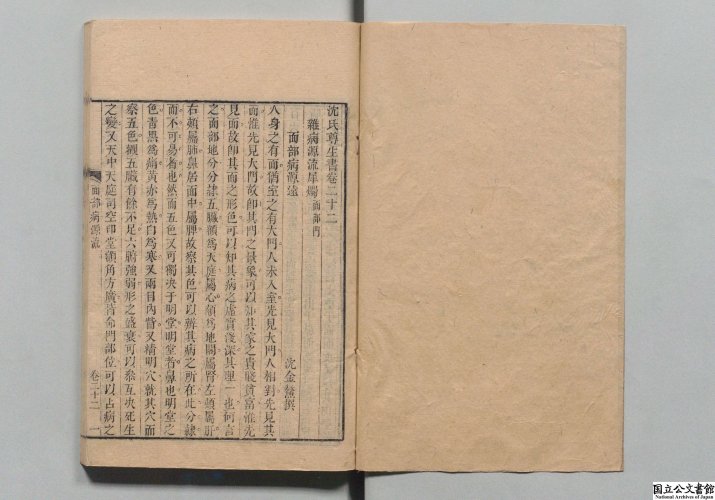 沈氏尊生書卷二十二
雜病源流犀燭 面部門
沈金鰲撰
面部病源流
人身之有面猶室之有大門人未入室先見大門人相對先見其
面惟先見大門故卽其門之景象可以知其家之貴賤貧富惟先
見面故卽其面之形色可以知其病之虛實淺深其理一也何言
之面部地分分隸五臟額爲天庭屬心頦爲地閣屬腎左頰屬肝
右頰屬肺鼻居面中屬脾故察其色可以辨其病之所在此分隸
而不可易者也然而五色又可獨決于明堂明堂者鼻也明堂之
色靑黑爲痛黃赤爲熱白爲寒又兩目內眥又精明穴就其穴而
察五色觀五臟有餘不足六腑強弱形之盛衰可以叅互決死生
之變又天中天庭司空印堂額角方廣皆命門部位可以占病之
面部病源流
卷二十二
一
国立公文書館
National Archives of Japan